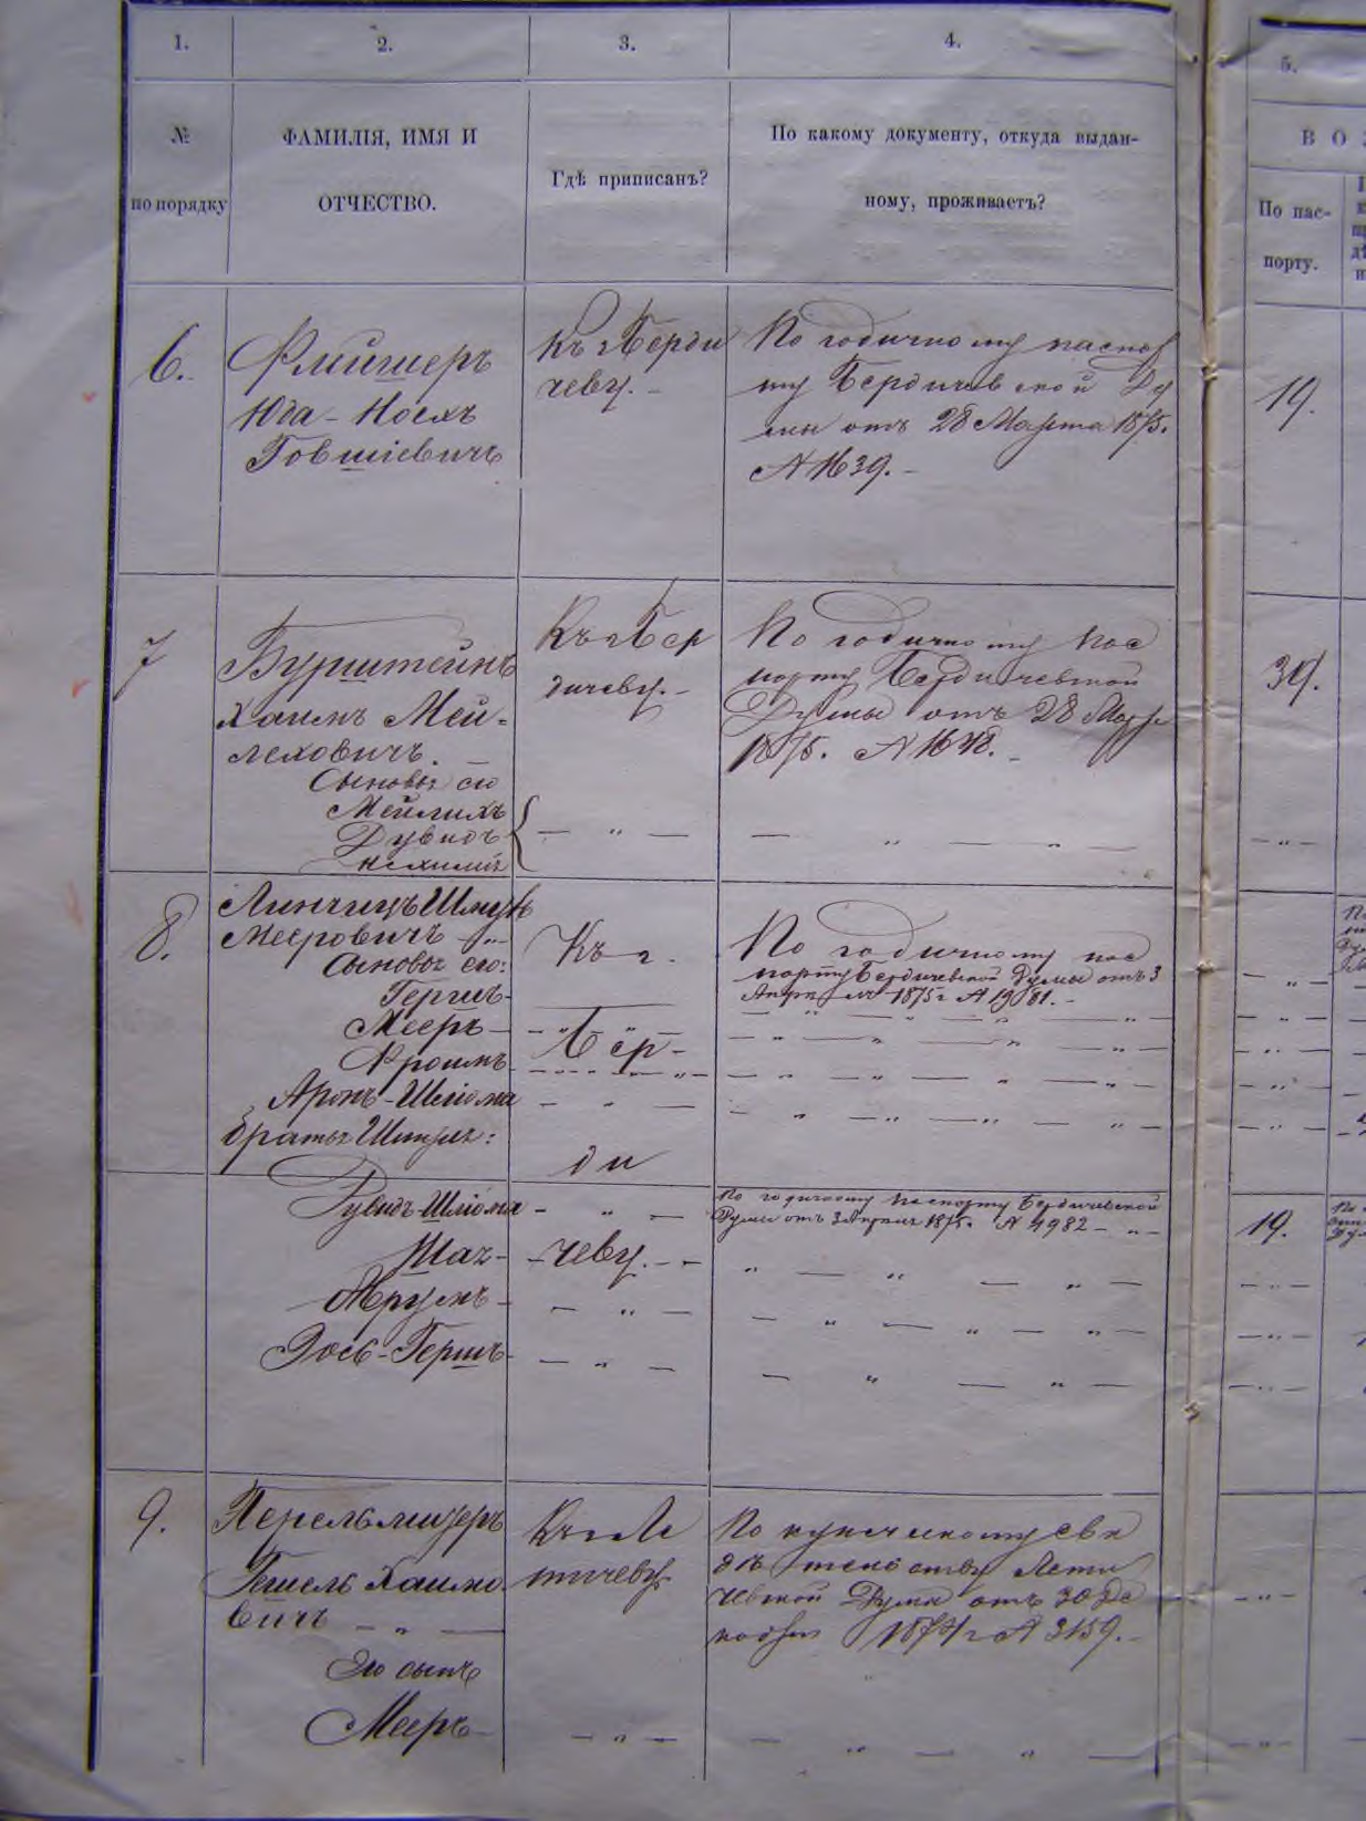 1.
2.
3.
4.
5.
№
по порядку
ФАМИЛІЯ, ИМЯ И
ОТЧЕСТВО.
Гдѣ приписанъ?
По какому документу, откуда выдан-
ному, проживаетъ?
В О
По пас-
порту.
6.
Флишеръ
Юда-Иосъ
Говшіевичъ
Къ г. Берди
чеву.-
По годичному паспор
ту Бердичевской Ду
мы отъ 28 Марта 1875.
№ 1639.-
19.
7
Бурштейнъ
Хаимъ Мей-
леховичъ.
Сыновья его
Мейлихъ
Дувидъ
Нахимъ
Къ г. Бер
дичеву.-
По годичному пас
порту Бердичевской
Думы отъ 28 Марта
1875. № 1648.-
— „ —
— „ — „ —
39.
- „ -
8.
Линчицъ Шмуль
Мееровичъ - „ -
Сыновья его:
Гершъ-
Мееръ-
Фроимъ
Аронъ-Шліома
Братья Шмуля:
Къ г.
Бер-
ди
-чеву.-
По годичному пас
порту Бердичевской Думы отъ 3
Апрѣля 1875 г. № 1981.-
Дувидъ-Шліома
Шая-
Аврумъ-
Іось-Гершъ
По годичному паспорту Бердичевской
Думы отъ 3 Апрѣля 1875. № 4982 - „ -
19.
9.
Перельмутеръ
Гешель Хаимо
вичъ - „ —
Его сынъ
Мееръ-
Къ г. Ле
тичеву.
По купеческому сви
дѣтельству Лети
чевской Думы отъ 30 Де
кабря 1874 г. № 3159.-
- „ -
— „ — „ —
- „ -